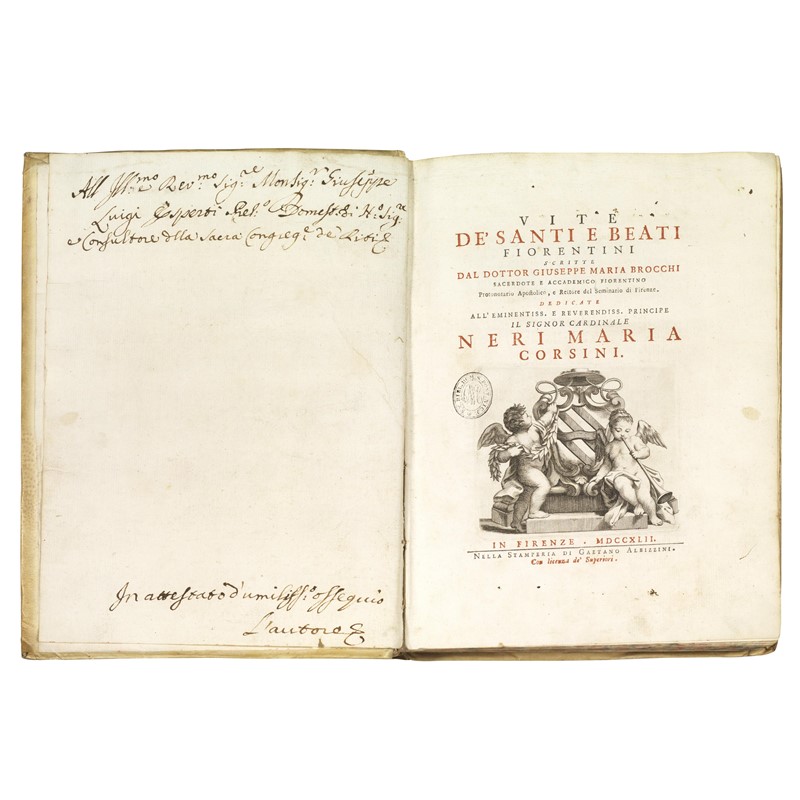 All Ill.mo e Rev.mo Sig.re Monsig.r Giuseppe
Luigi Esperti Prel.o Domest.o di N.o Sig.re
e Consultore della Sacra Congreg.e de Riti
In attestato d'umiliss.o ossequio
L'autore
VITE
DE' SANTI E BEATI
FIORENTINI
SCRITTE
DAL DOTTOR GIUSEPPE MARIA BROCCHI
SACERDOTE E ACCADEMICO FIORENTINO
Protonotario Apostolico, e Rettore del Seminario di Firenze.
DEDICATE
ALL' EMINENTISS. E REVERENDISS. PRINCIPE
IL SIGNOR CARDINALE
NERI MARIA
CORSINI.
IN FIRENZE . MDCCXLII.
NELLA STAMPERIA DI GAETANO ALBIZZINI.
Con licenza de' Superiori.